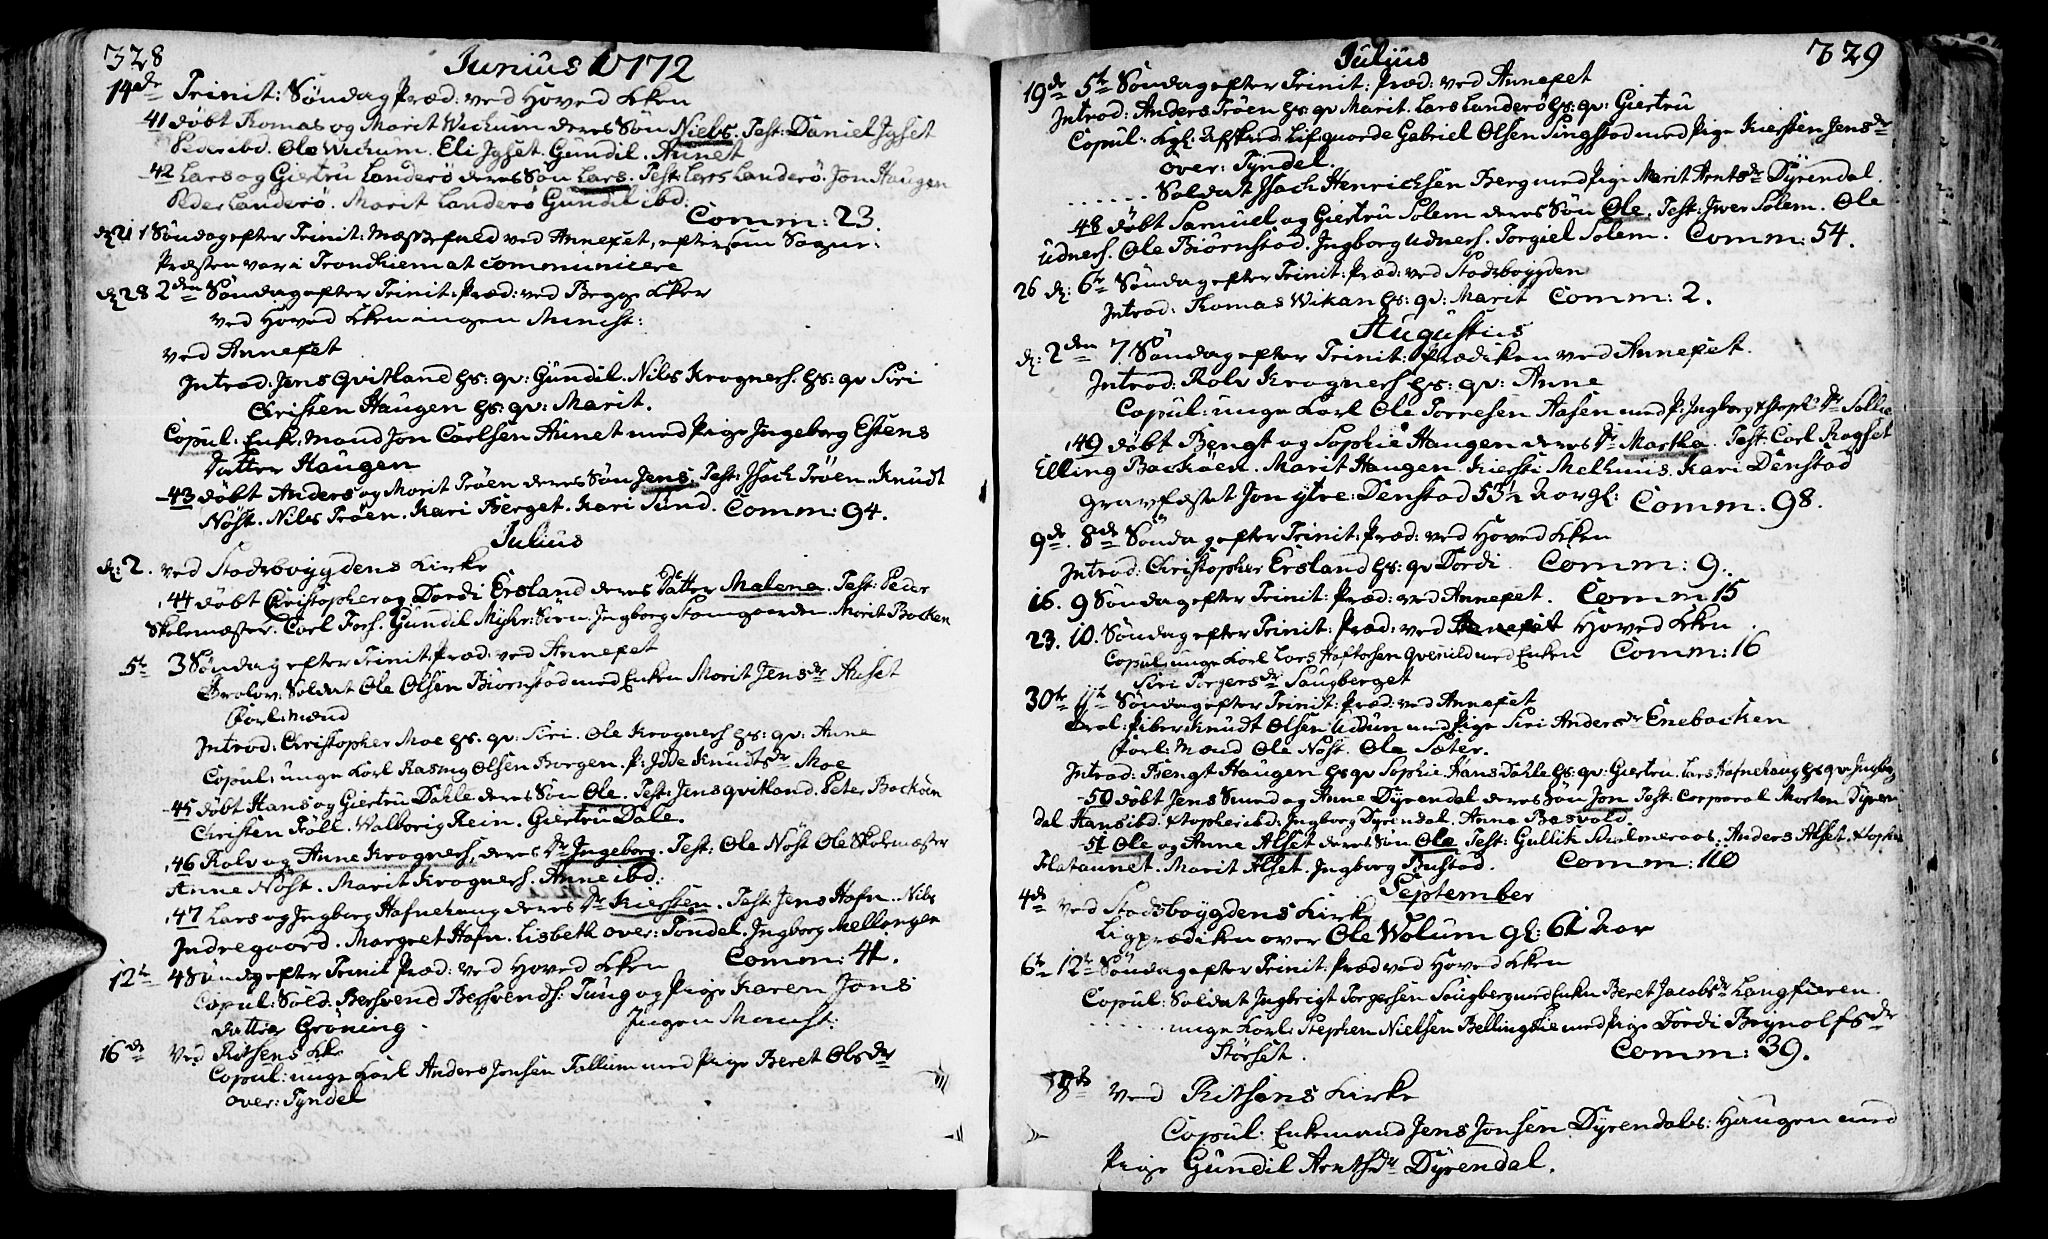 328
Junius 1772
14de Trinit: Søndag Præd: ved Hoved Kken
41 døbt Tomas og Marit Wickum deres Søn Niels. Test: Daniel Jgset
Peder ibd. Ole Wickum. Eli Jgset. Gundil. Aunet
42 Lars og Giertru Landerö deres Søn Lars. Test: Lars Landerö. Jon Haugen
Peder Landerö. Marit Landerö Gundil ibd.
Comm: 23.
d: 21 1 Søndag efter Trinit: Mæssefald ved Annexet, eftersom Sogne-
Præsten var i Trondhiem at communicere
d: 28 2den Søndag efter Trinit: Præd: ved Begge Kker
ved Hoved Kken ingen Minist:
ved Annexet
Introd: Jens Qvitland hs: qv: Gundil. Niels Krogners. hs: qv Siri
Christen Haugen hs: qv: Marit.
Copul: Enke-Mand Jon Carlsen Aunet med Pige Ingeborg Estens
Datter Haugen
43 døbt Anders og Marit Tröen deres Søn Jens. Test: Isach Tröen. Knudt
Nöst. Niels Tröen. Kari Berget. Kari Sund. Comm: 94.
Julius
d: 2. ved Stadsboygdens Kirke
44 døbt Christopher og Dordi Ersland deres Datter Malena. Test: Peder
Skolemæster. Carl Fors. Gundil Myhr. Sörn. Ingborg Stamgaarden. Marit Backen
5te 3 Søndag efter Trinit: Præd: ved Annexet
Trolov: Soldat Ole Olsen Biörnstad med Enken Marit Jensdr Auset
forl: mænd
Introd: Christopher Moe hs: qv: Siri. Ole Krogners hs: qv: Anne
Copul: unge Karl Rasmg Olsen Borgen. P: Jöde Knudtsdr Moe
45 døbt Hans og Giertru Dahle deres Søn Ole. Test: Jens Qvitland. Peter Backöen
Christen Föll. Valborig Rein. Giertru Dale.
46 Rolv og Anne Krogners, deres Dr Ingeborg. Test: Ole Nöst Ole Skolmæster
Anne Nöst. Marit Krogners. Anne ibd:
47 Lars og Ingborg Hafnehaug deres Dr Kiersten. Test: Jens Hafn. Niels
Indregaard. Margret Hafn. Lisbeth over: Töndel. Ingborg Mellingen
Comm: 41.
12te 4 Søndag efter Trinit Præd: ved Hoved Kken
Copul: Sold: Bersvend Bersvends: Tung og Pige Karen Jons
datter Gröning. Ingen Minist:
16de Ved Ritsens Kke
Copul: unge Karl Anders Jonsen Fallium med Pige Beret Olsdr
over: Tyndel

329
Julius
19de 5te Søndag efter Trinit: Præd: ved Annexet
Introd: Anders Tröen hs: qv Marit. Lars Landerö hs: qv: Giertru
Copul: Kgl: Afskeed. Lifguarde Gabriel Olsen Singstad med Pige Kiersten Jensdr
over: Tyndel.
...... Soldat Isach Henrichsen Berg med Pige Marit Arntsdr Dyrendal.
48 døbt Samuel og Giertru Solem deres Søn Ole. Test: Iwer Solem. Ole
Udners. Ole Biörnstad. Ingborg Udners. Torgiel Solem. Comm: 54.
26 d: 6te Søndag efter Trinit: Præd: ved Stadsboygden
Introd: Tomas Wikan hs: qv: Marit Comm: 2.
Augustus
d: 2den 7. Søndag efter Trinit: Prædiken ved Annexet.
Introd: Rolv Krogners hs: qv: Anne
Copul: unge Karl Ole Torresen Aasen med P: Ingborg Xstoph: Dr Sollie
49 døbt Bengt og Sophie Haugen deres Dr Martha. Test: Carl Rogset
Elling Backöen. Marit Haugen. Kiersti Melhuus. Kari Denstad
gravfæstet Jon ytre: Denstad 53½ Aar gl: Comm: 98.
9de. 8de Søndag efter Trinit: Præd: ved Hoved Kken
Introd: Christopher Ersland hs: qv Dordi Comm: 9.
16. 9 Søndag efter Trinit: Præd: ved Annexet. Comm 15
23. 10. Søndag efter Trinit: Præd: ved Annexet Hoved Kken.
Copul: unge Karl Lars Haftorsen Qvenild med Enken Comm: 16
Siri Torgersdr Saugberget
30te 11te Søndag efter Trinit: Præd: ved Annexet
Trol: Piber Knudt Olsen Udduu med Pige Siri Andersdr Enebacken
forl: Mænd Ole Nöst. Ole Sæter.
Introd: Bengt Haugen hs qv Sophie Hans Dahle hs: qv: Giertru. Lars Hafnehaug hs qv: Ingborg
50 døbt Jens Smed og Anne Dyrendal deres Søn Jon Test: Corporal Morten Dyren
dal Hans ibd: Xstopher ibd: Ingborg Dyrendal. Anne Basvold.
51 Ole og Anne Alset deres Søn Ole. Test: Gullik Anders Alset. Xstopher
Flataunet. Marit Alset. Ingborg Bustad. Comm: 110
September
4de ved Stadsboygdens Kirke
Ligprædiken over Ole Wolum gl: 61 Aar
6te 12te Søndag efter Trinit: Præd ved Hoved Kken
Copul: Soldat Ingbrigt Torgersen Saugberg med Enken Beret Jacobsdr Langfieren.
...... unge Karl: Stephen Nielsen Bellingslie med Pige Dordi Brynolfsdr
Störset. Comm: 39.
8de ved Ritsens Kirke
Copul: Enkemand Jens Jonsen Dyrendals: Haugen med
Pige Gundil Arntsdr Dyrendal.